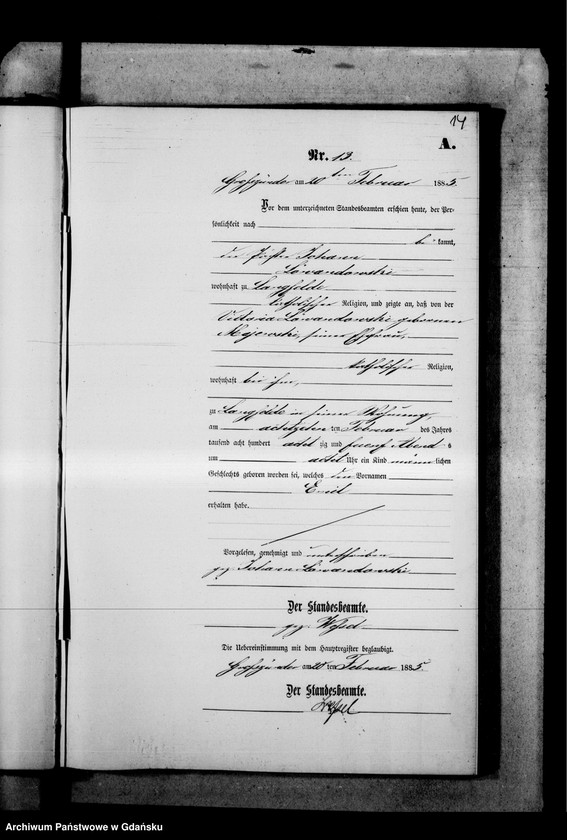 14
A.
Nr. 13.
Großzünder am 20 ten Februar 1885.
Vor dem unterzeichneten Standesbeamten erschien heute, der Per-
sönlichkeit nach
be kannt,
der Johann
Lewandowski
wohnhaft zu Langfelde
katholischer Religion, und zeigte an, daß von der
Victoria Lewandowski geborenen
Majewski, seiner Ehefrau,
katholischer Religion,
wohnhaft bei ihm,
zu Langfelde in seiner Wohnung,
am achtzehnten ten Februar des Jahres
tausend acht hundert acht zig und fuenf Abend s
um acht Uhr ein Kind männ lichen
Geschlechts geboren worden sei, welches den Vornamen
Emil
erhalten habe.
Vorgelesen, genehmigt und unterschrieben
gez. Johann Lewandowski
Der Standesbeamte.
gez. Wessel
Die Uebereinstimmung mit dem Hauptregister beglaubigt.
Großzünder am 20 ten Februar 1885.
Der Standesbeamte.
Wessel
Archiwum Państwowe w Gdańsku